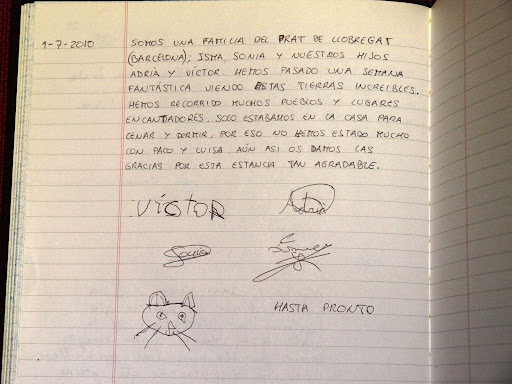 1-7-2010 SOMOS UNA FAMILIA DEL PRAT DE LLOBREGAT
(BARCELONA); ISMA, SONIA Y NUESTROS HIJOS
ADRIÀ Y VÍCTOR. HEMOS PASADO UNA SEMANA
FANTÁSTICA VIENDO ESTAS TIERRAS INCREIBLES.
HEMOS RECORRIDO MUCHOS PUEBLOS Y LUGARES
ENCANTADORES. SOLO ESTABAMOS EN LA CASA PARA
CENAR Y DORMIR, POR ESO NO HEMOS ESTADO MUCHO
CON PACO Y LUISA. AÚN ASI OS DAMOS LAS
GRACIAS POR ESTA ESTANCIA TAN AGRADABLE.
VíCTOR Adrià
Sonia
HASTA PRONTO